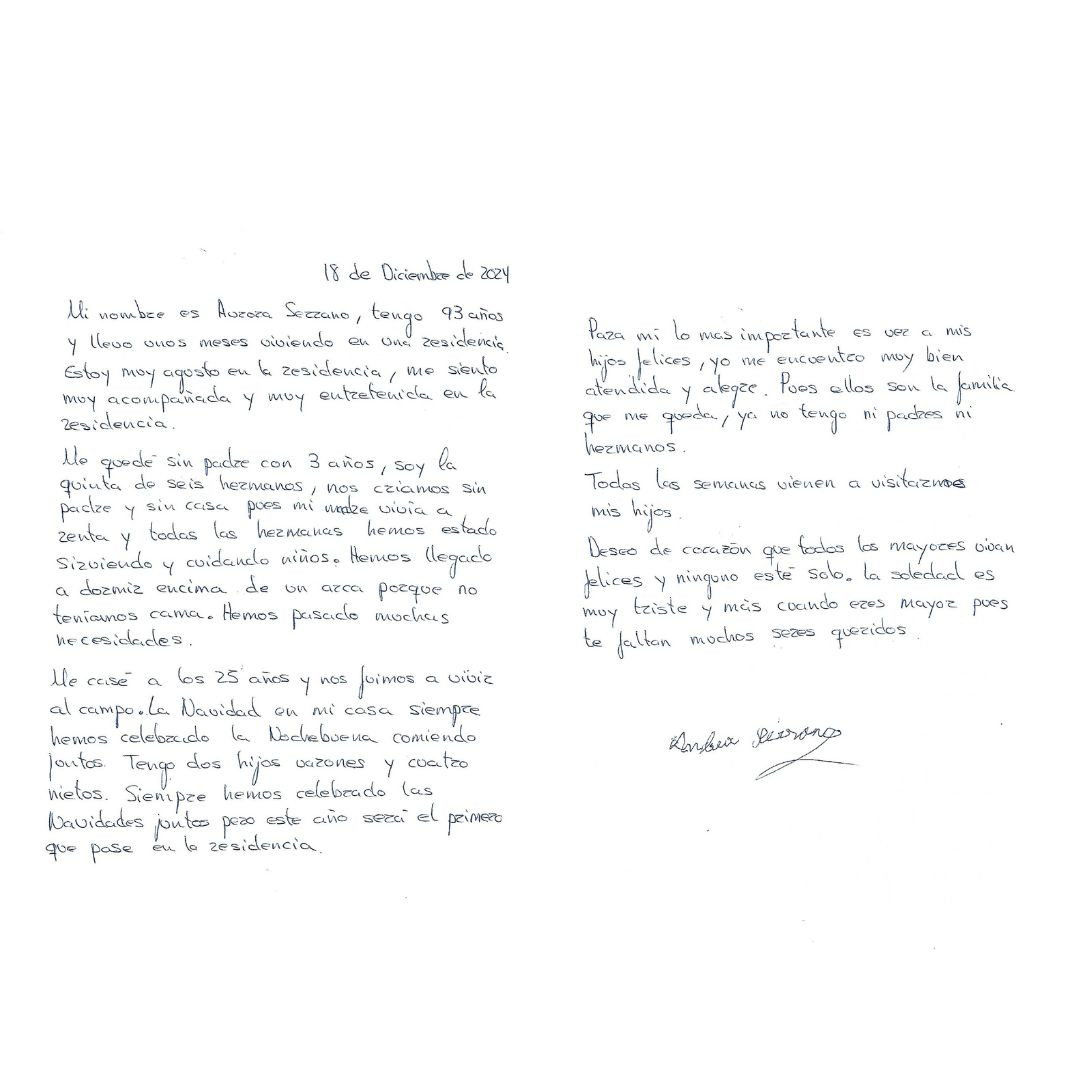 18 de Diciembre de 2024
Mi nombre es Aurora Serrano, tengo 93 años
y llevo unos meses viviendo en una residencia.
Estoy muy agosto en la residencia, me siento
muy acompañada y muy entretenida en la
residencia.
Me quedé sin padre con 3 años, soy la
quinta de seis hermanos, nos criamos sin
padre y sin casa pues mi madre vivia a
renta y todas las hermanas hemos estado
sirviendo y cuidando niños. Hemos llegado
a dormir encima de un arca porque no
teníamos cama. Hemos pasado muchas
necesidades.
Me casé a los 25 años y nos fuimos a vivir
al campo. La Navidad en mi casa siempre
hemos celebrado la Nochebuena comiendo
juntos. Tengo dos hijos varones y cuatro
nietos. Siempre hemos celebrado las
Navidades juntos pero este año será el primero
que pase en la residencia.
Para mí lo mas importante es ver a mis
hijos felices, yo me encuentro muy bien
atendida y alegre. Pues ellos son la familia
que me queda, ya no tengo ni padres ni
hermanos.
Todas las semanas vienen a visitarme
mis hijos.
Deseo de corazón que todos los mayores vivan
felices y ninguno esté solo. La soledad es
muy triste y más cuando eres mayor pues
te faltan muchos seres queridos.
Serrano